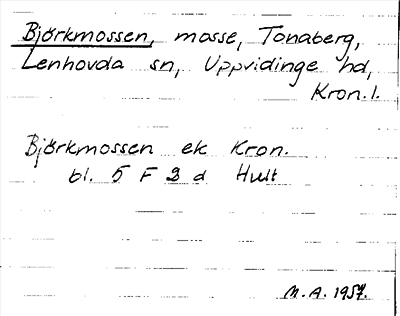 Björkmossen, mosse, Tonaberg,
Lenhovda sn, Uppvidinge hd,
Kron. l.
Björkmossen ek Kron.
bl. 5 F 3 d Hult
M.A. 1957.